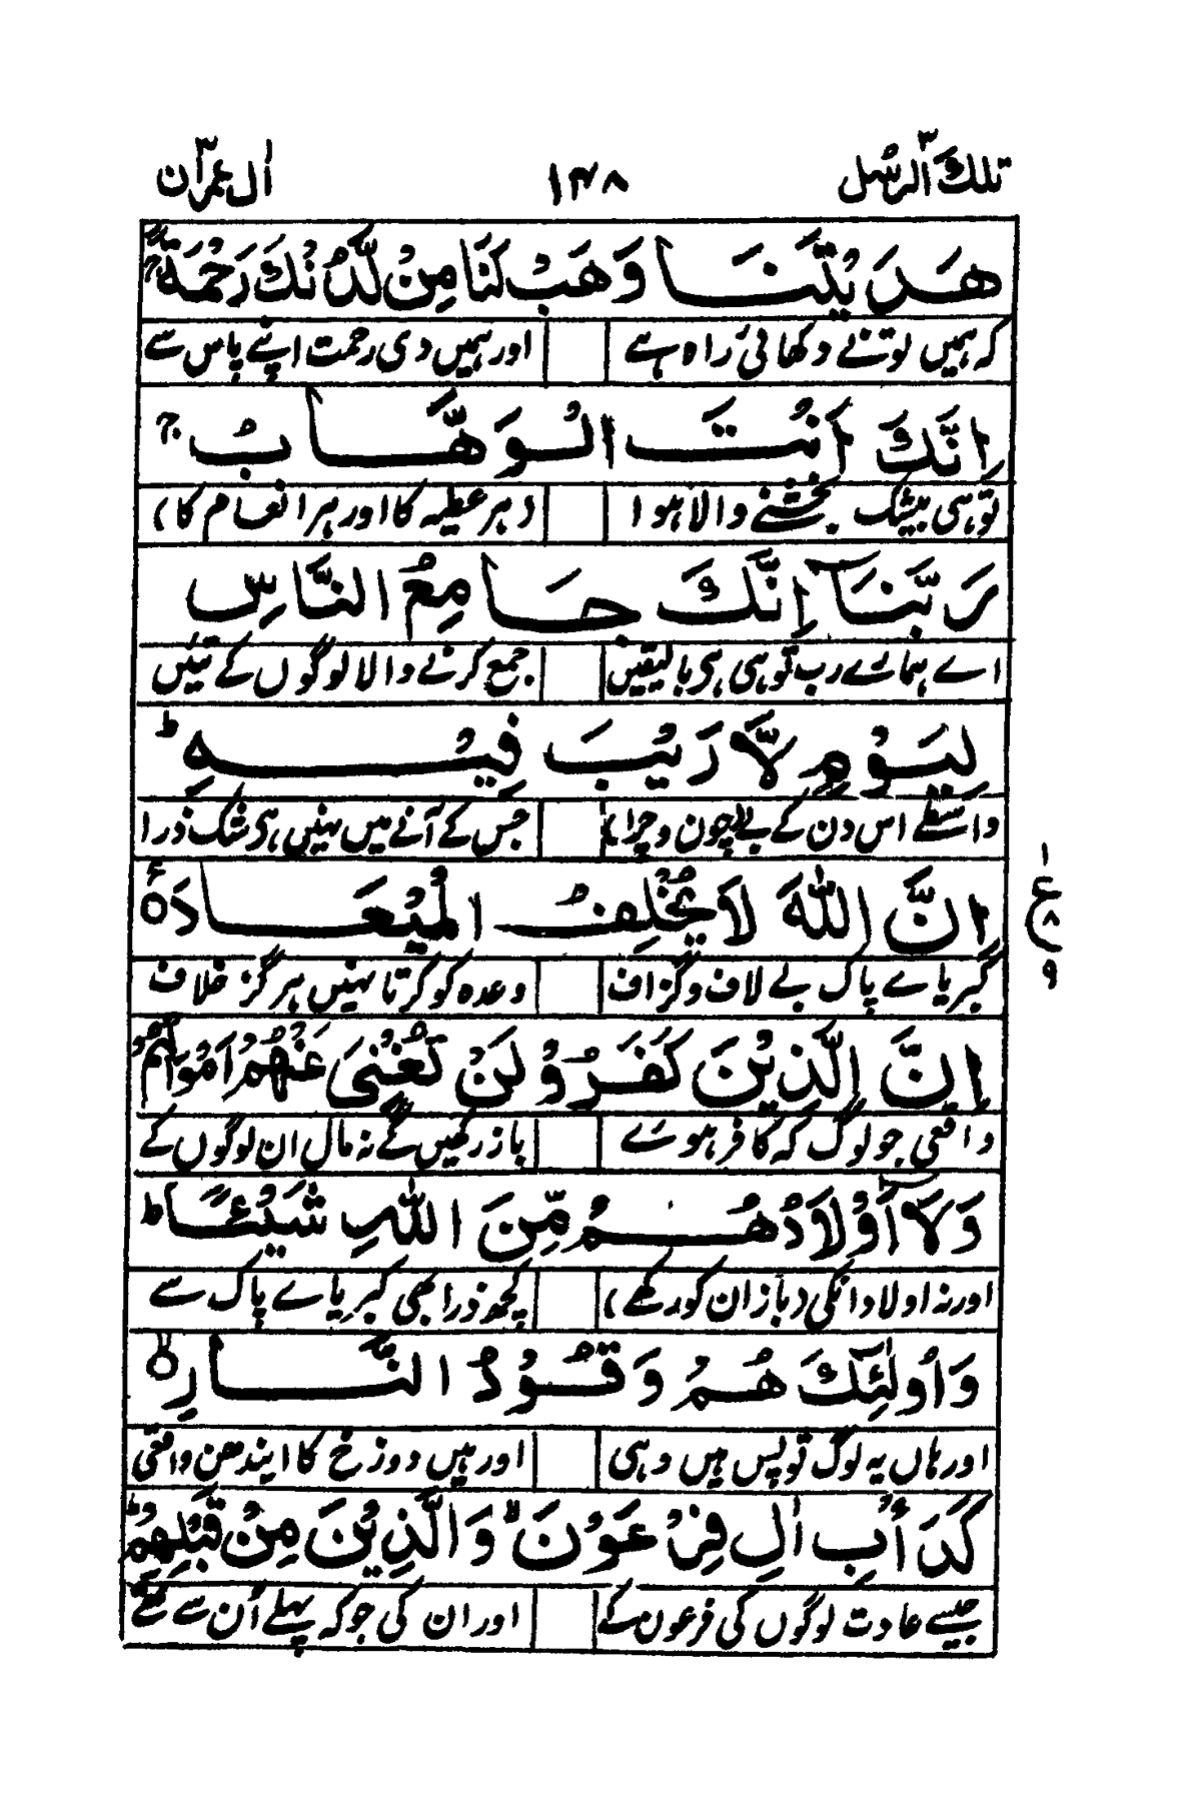 تلك الرسل ٣ ١٤٨ اٰل عمران ٣
هَدَيْتَنَا وَهَبْ لَنَا مِنْ لَّدُنْكَ رَحْمَةً ۚ
کہ ہمیں تو نے دکھائی راہ ہے اور ہمیں دی رحمت اپنے پاس سے
اِنَّكَ اَنْتَ الْوَهَّابُ
تو ہی بیشک بخشنے والا ہوا (ہر عطیہ کا اور ہر انعام کا)
رَبَّنَآ اِنَّكَ جَامِعُ النَّاسِ
اے ہمارے رب تو ہی ہی بالیقیں جمع کرنے والا لوگوں کے تئیں
لِيَوْمٍ لَّا رَيْبَ فِيْهِ ؕ
واسطے اس دن کے (بے چون و چرا) جس کے آنے میں نہیں ہی شک ذرا
اِنَّ اللّٰهَ لَا يُخْلِفُ الْمِيْعَادَ ۠
کبریاے پاک بے لاف و گزاف وعدہ کو کرتا نہیں ہرگز خلاف
١ ع ٨ ٩
اِنَّ الَّذِيْنَ كَفَرُوْا لَنْ تُغْنِىَ عَنْهُمْ اَمْوَالُهُمْ
واقعی جو لوگ کہ کافر ہوے باز رکھیں گے نہ مال ان لوگوں کے
وَلَآ اَوْلَادُهُمْ مِّنَ اللّٰهِ شَيْـًٔا ؕ
اور نہ اولاد انکی (باز ان کو رکھے) کچھ ذرا بھی کبریاے پاک سے
وَاُولٰٓئِكَ هُمْ وَقُوْدُ النَّارِ ۙ
اور ہاں یہ لوگ تو بس ہیں وہی اور ہیں دوزخ کا ایندھن واقعی
كَدَاْبِ اٰلِ فِرْعَوْنَ ۙ وَالَّذِيْنَ مِنْ قَبْلِهِمْ ؕ
جیسے عادت لوگوں کی فرعون کے اور ان کی جو کہ پہلے اُن سے تھے